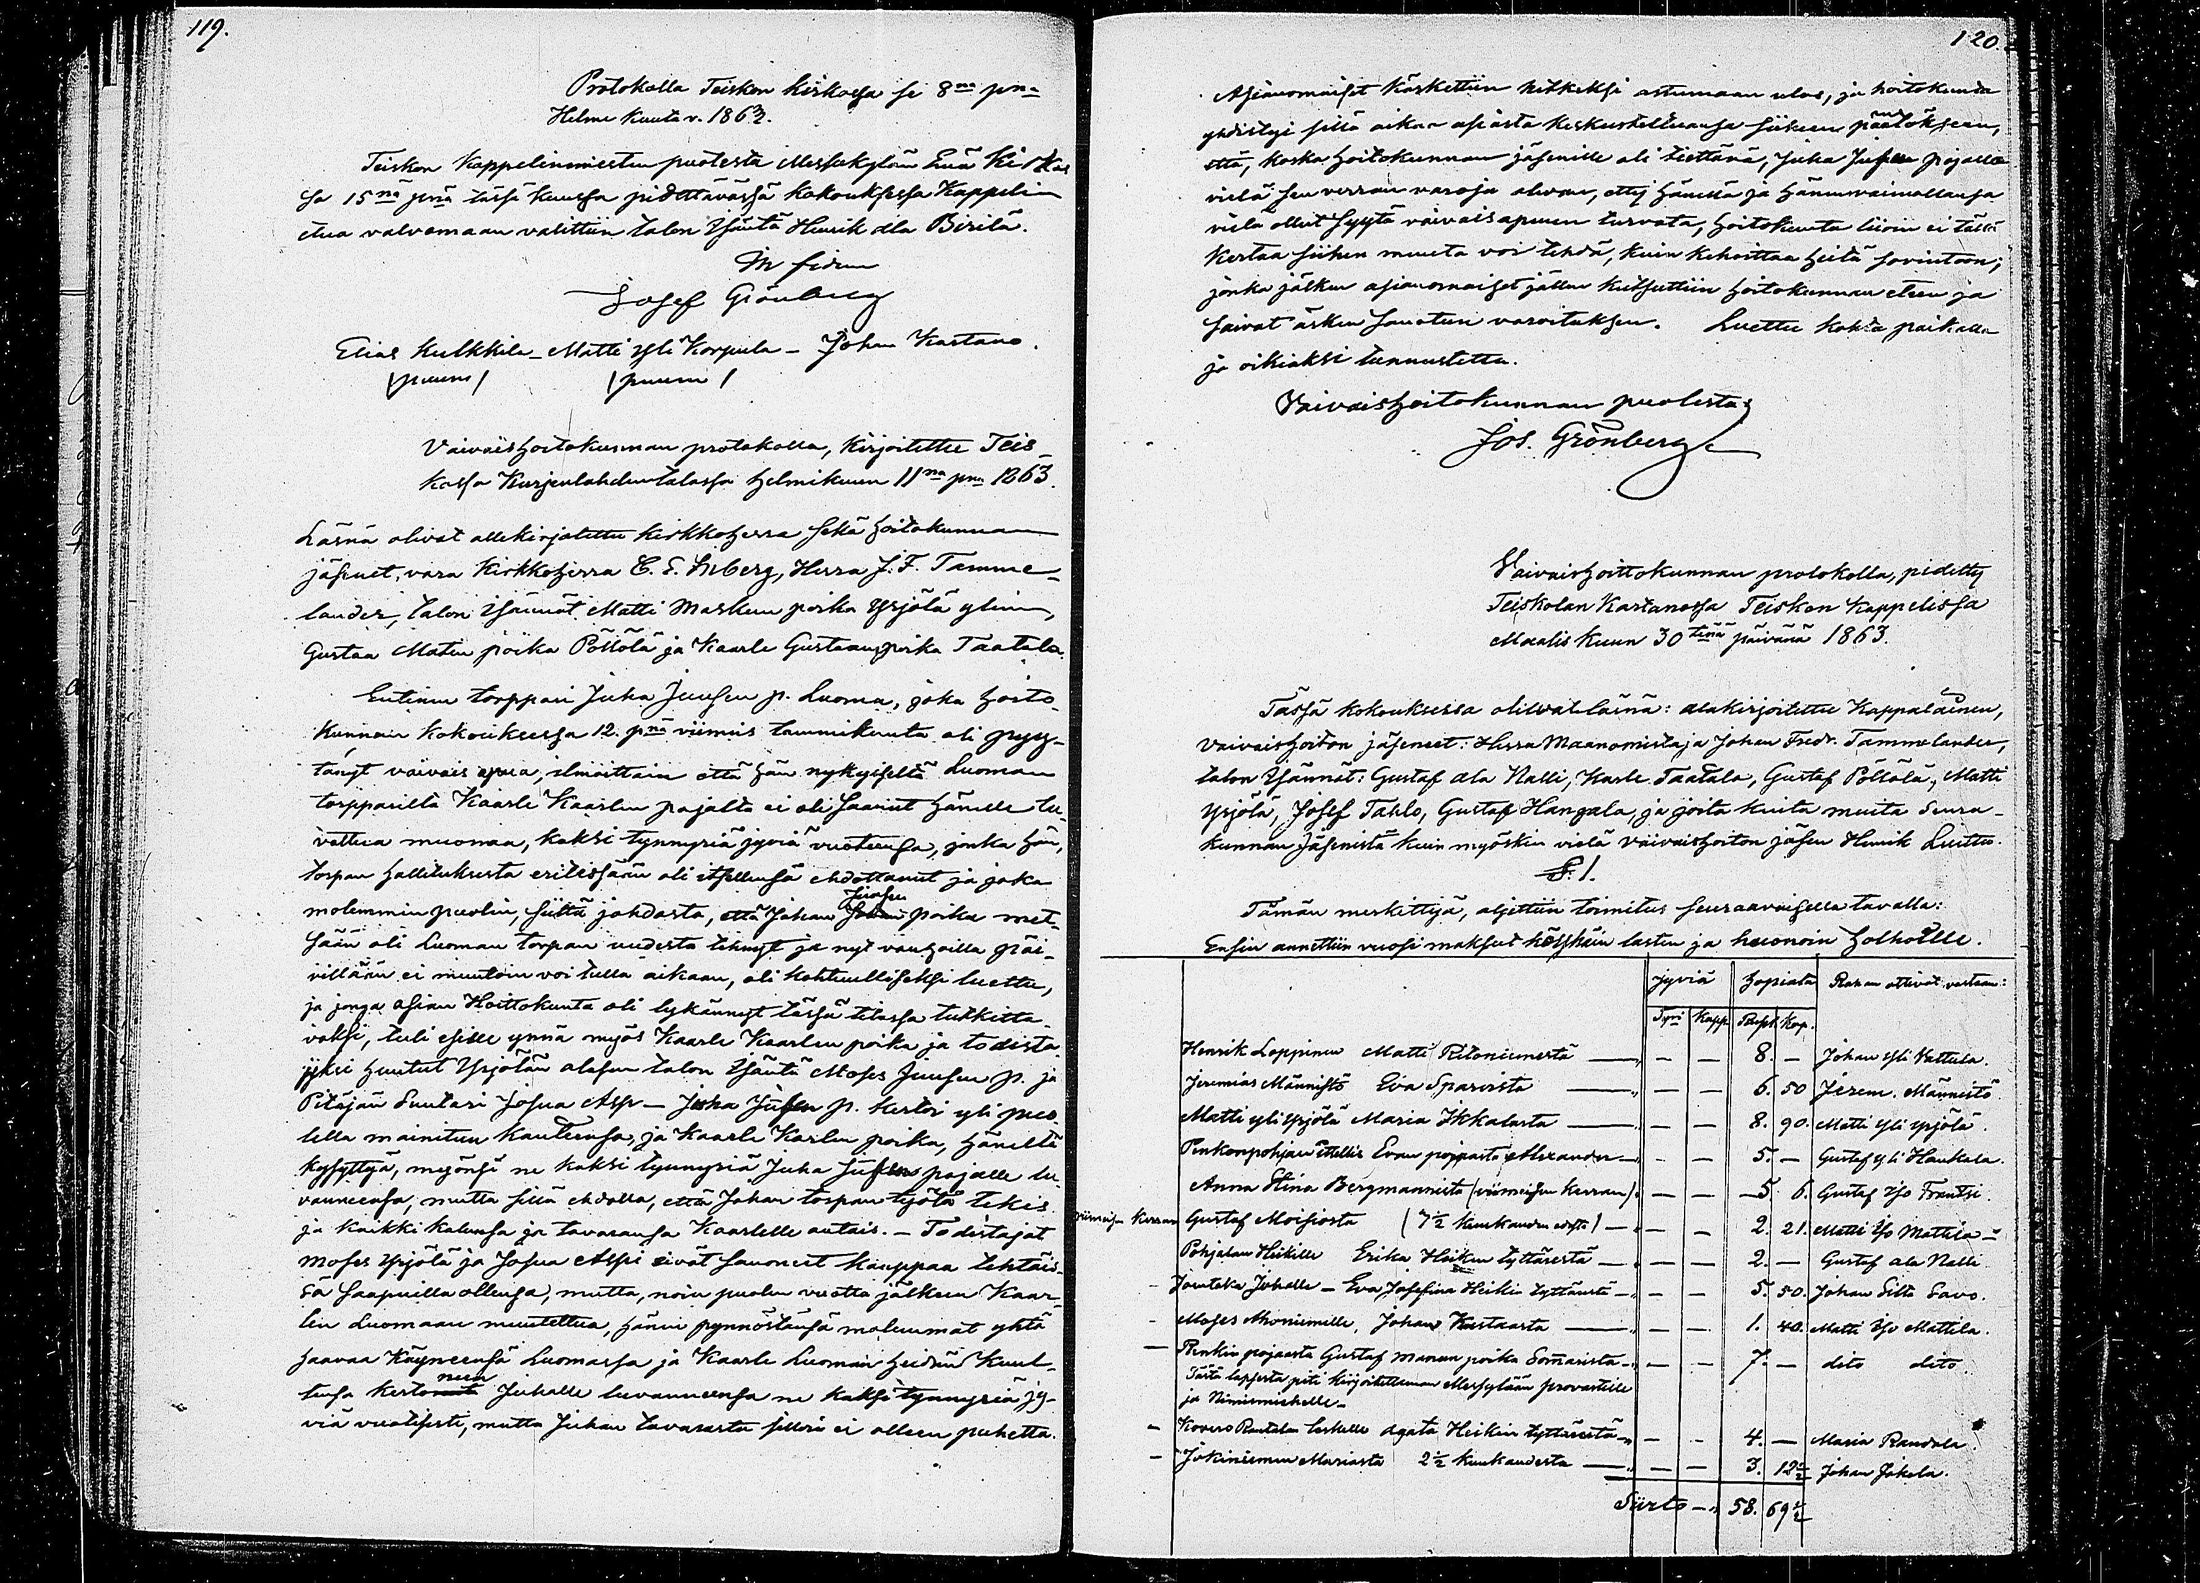 119.
Protokolla Teiskon kirkossa se 8na pna
Helme Kuuta v. 1863.
Teiskon Kappelinmiesten puolesta Messukylän Emä Kirkos
sa 15nä pnä tässä kuussa pidettävässä kokouksessa Kappelin
etua valvomaan valittiin talon Isäntä Henrik ala Pirilä.
In fidem
Josef Grönberg
Elias Kulkkila – Matti Yli Korpula – Johan Kastano.
/puum/ /puum/
Vaivaishoitokunnan protokolla, kirjoitettu Teis-
kossa Kurjenlahden talossa Helmikuun 11na pnä 1863.
Läsnä olivat allekirjoitettu kirkkoherra sekä hoitokunnan
jäsenet, vara Kirkkoherra C. E. Inberg, Herra J. F. Tamme-
lander, talon Isännät Matti Markun poika Yrjölä ylinen,
Gustaa Matin poika Pöllölä ja Kaarle Gustaan poika Taatala.
Entinen torppari Juha Juusen p. Luoma, joka hoito-
kunnan kokouksessa 12. pnä viimeis tammikuuta oli pyy-
tänyt vaivais apua, ilmoittain että hän nykyiseltä Luoman
torpparilta Kaarle Kaarlen pojalta ei oli saanut hänelle lu-
vattua muonaa, kaksi tynnyriä jyviä vuoteensa, jonka hän,
torpan hallituksesta eritessään oli itsellensä ehdottanut ja joka
molemmin puolin, siitä johdosta, että Johan Juusen poika met-
sään oli Luoman torpan uudesta tehnyt ja nyt vanhoilla päi-
villään ei muutoin voi tulla aikaan, oli kohtuulliseksi luettu,
ja jonga asian Hoitokunta oli lykännyt tässä tilassa tutkitta-
vaksi, tuli esille ynnä myös Kaarle Kaarlen poika ja todista-
jiksi huutut Yrjölän alasen talon Isäntä Moses Juusen p. ja
Pitäjän Suutari Josua Asp – Juha Jusen p. kertoi yli puo-
lella mainitun kanteensa, ja Kaarle Karlen poika, häneltä
kysyttyä, myönsi ne kaksi tynnyriä Juha Jusen pojalle lu-
vanneensa, mutta sillä ehdolla, että Johan torpan työtä tekis
ja kaikki kalunsa ja tavaransa Kaarlelle antais. – Todistajat
Moses Yrjölä ja Josua Aspi eivät sanoneet kauppaa tehtäis-
sä saapuilla olleensa, mutta, noin puolen vuotta jälkeen Kaar-
len Luomaan muutettua, hänen pynnöstänsä molemmat yhtä
haavaa käyneensä Luomassa ja Kaarle Luoman heidän kuul-
tensa kertoneen Juhalle luvanneensa ne kaksi tynnyriä jy-
viä vuotisesti, mutta Juhan tavarasta silloin ei olleen puhetta.
120.
Asianomaiset käskettiin hetkeksi astumaan ulos, ja hoitokunda
yhdistyi sillä aikaa asiasta keskusteltuansa siiheen päätökseen,
että, koska hoitokunnan jäsenille oli tiettänä, Juha Jusen pojalla
vielä sen verran varoja olevan, ettij hänellä ja hänen vaimollansa
vielä ollut syytä vaivaisapuun turvata, hoitokunta liioin ei tällä
kertaa siihen muuta voi tehdä, kuin kehoittaa heitä sovintoon;
jonka jälkeen asianomaiset jällen kutsuttiin hoitokunnan eteen ja
saivat äsken sanotun varoituksen. Luettu kohta paikalla
ja oikiaksi tunnustettu.
Vaivaishoitokunnan puolesta
Jos. Grönberg
Vaivaishoittokunnan protokolla, pidetty
Teiskolan Kartanossa Teiskon Kappelissa
Maalis Kuun 30tenä päivänä 1863.
Tässä kokouksessa olilvat läinä: alakirjoitettu Kappalainen,
vaivaishoiton jäseneet: Herra Maanomistaja Johan Fredr. Tammelander,
talon Isännät: Gustaf ala Nalli, Karle Taatala, Gustaf Pöllölä, Matti
Yrjölä, Josef Tahlo, Gustaf Hangala, ja joita kuita muita Seura-
kunnan Jäsenistä kuin myöskin vielä vaivaishoiton jäsen Henrik Luittu.
§. 1.
Tämän merkettyä, aljettiin toimitus seuraavaisella tavalla:
Ensin annettiin vuosi maksut köyhäin lasten ja huonoin holhoille.
Jyviä Hopiata Rahan ottivat vastaan:
Tyni Kapp. Rupl. Kop.
Henrik Loppinen Matti Ritoniemestä — — — 8. — Johan Yli Vattula.
Jeremias Männistö Eva Sparvista — — — 6. 50 Jerem. Männistö
Matti yli Yrjölä Maria Ikkalasta — — — 8. 90. Matti Yli Yrjölä.
Penkonpohjan itsellis Evan pojasta Alexander — — — 5. — Gustaf yli Haukala.
Anna Stina Bergmannista (viimeisen kerran) — — 5 6. Gustaf Iso Frantsi.
viimeisen kerran Gustaf Moisiosta (7½ kuukauden edestä) — — — 2. 21. Matti Iso Mattila
Pohjalan Heikille Erika Heikin tyttärestä — — — 2. — Gustaf ala Nalli
Jouteka Juhalle – Eva Josefina Heikin tyttärestä — — — 5. 50. Johan Silta Savo.
Moses Ahoniemille, Johan Kustaasta — — — 1. 40. Matti Iso Mattila.
Penkin pojaasta Gustaf Manun poika Sommarista — — — 7. — dito dito
Tästä lapsesta piti kirjoitettaman Messylään provastille
ja Nimismiehelle.
Kovero Rantalan leskelle Agata Heikin tyttärestä — — — 4. — Maria Randala.
Jokiniemen Mariasta 2½ kuukaudesta — — — 3. 12½ Johan Jokela.
Siirto — 58. 69½